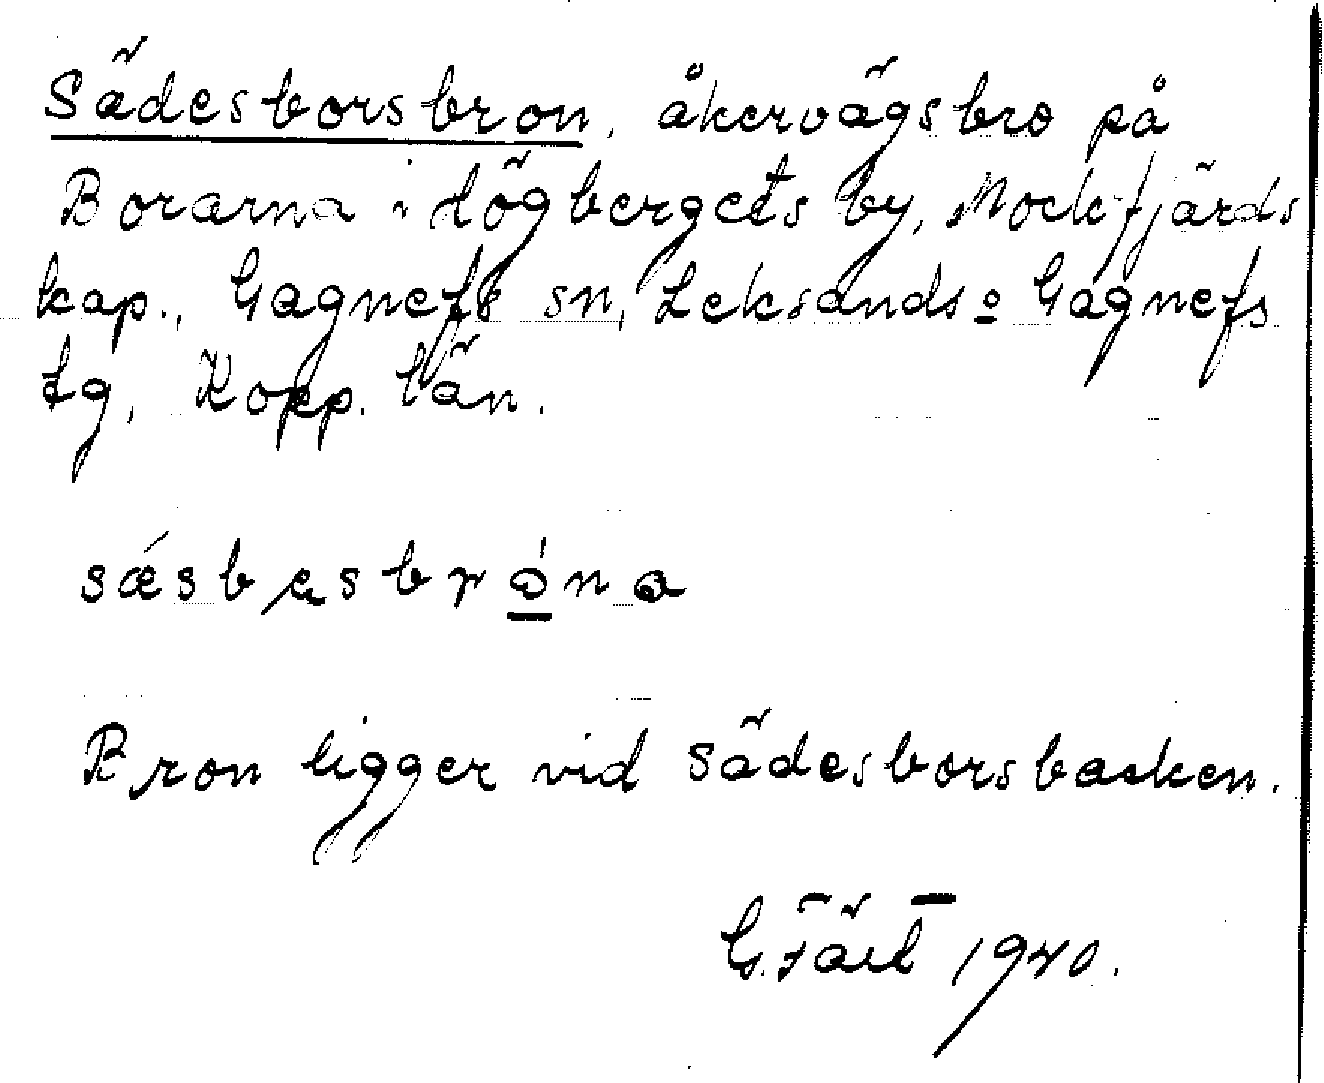 Sädesborsbron, åkervägsbro på
Borarna i Högbergets by, Mockfjärds
kap., Gagnefs sn, Leksands o Gagnefs
tg, Kopp. län.
Bron ligger vid Sädesborsbacken.
1940.